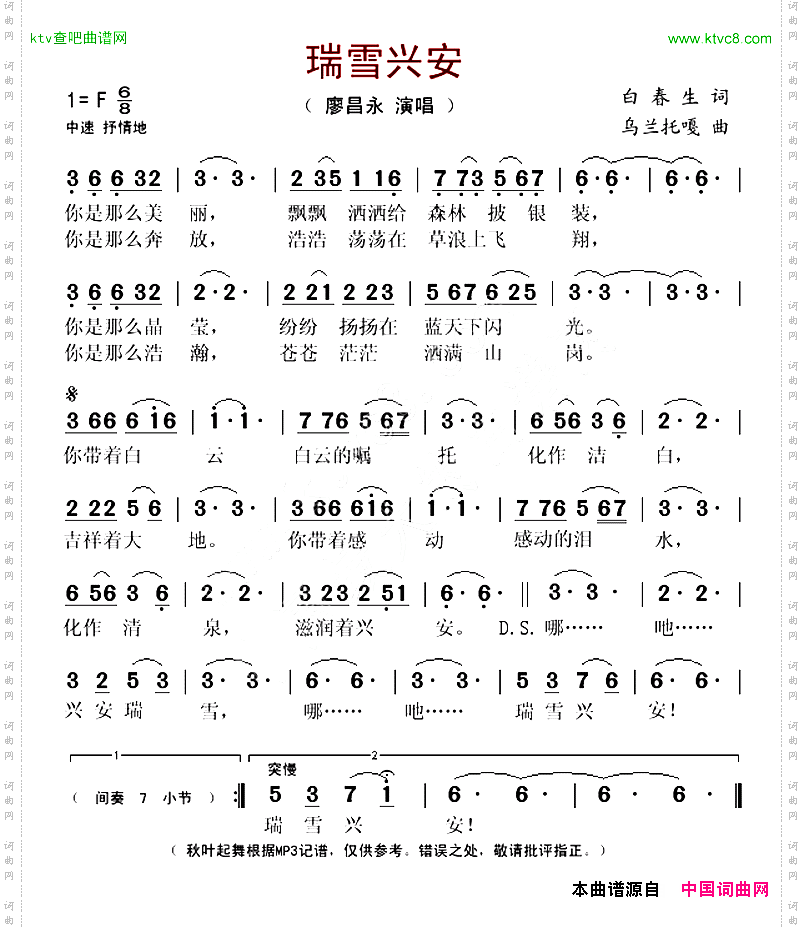 ktv查吧曲谱网 www.ktvc8.com
瑞雪兴安
1= F 6/8 （ 廖昌永 演唱 ） 白春生 词
中速 抒情地 乌兰托嘎 曲
3 6 6 6 3 2 | 3· 3· | 2 3 5 1 1 6 | 7 7 3 5 6 7 | 6· 6· | 6· 6· |
你是那么美 丽， 飘飘 洒洒给 森林 披 银 装，
你是那么奔 放， 浩浩 荡荡在 草浪上飞 翔，
3 6 6 6 3 2 | 2· 2· | 2 2 2 1 2 2 3 | 5 6 7 6 2 5 | 3· 3· | 3· 3· |
你是那么晶 莹， 纷纷 扬扬在 蓝天下闪 光。
你是那么浩 瀚， 苍苍 茫茫 洒满 山 岗。
3 6 6 6 1 6 | 1· 1· | 7 7 6 5 6 7 | 3· 3· | 6 5 6 3 6 | 2· 2· |
你带着白 云 白云的嘱 托 化作 洁 白，
2 2 2 2 5 6 | 3· 3· | 3 6 6 6 1 6 | 1· 1· | 7 7 6 5 6 7 | 3· 3· |
吉祥着大 地。 你带着感 动 感动的泪 水，
6 5 6 3 6 | 2· 2· | 3 3 2 3 2 5 1 | 6· 6· ‖ 3· 3· | 3· 3· |
化作 清 泉， 滋润着兴 安。 D.S. 哪…… 吔……
3 2 5 3 | 3· 3· | 6· 6· | 6· 6· | 5 3 7 6 | 6· 6· |
兴 安 瑞 雪， 哪…… 吔…… 瑞 雪 兴 安！
1 2
突慢
（ 间奏 7 小节 ） :‖ 5 3 7 1 | 6· 6· | 6· 6· | 6· 6· ‖
瑞 雪 兴 安！
（ 秋叶起舞根据MP3记谱，仅供参考。错误之处，敬请批评指正。）
本曲谱源自 中国词曲网